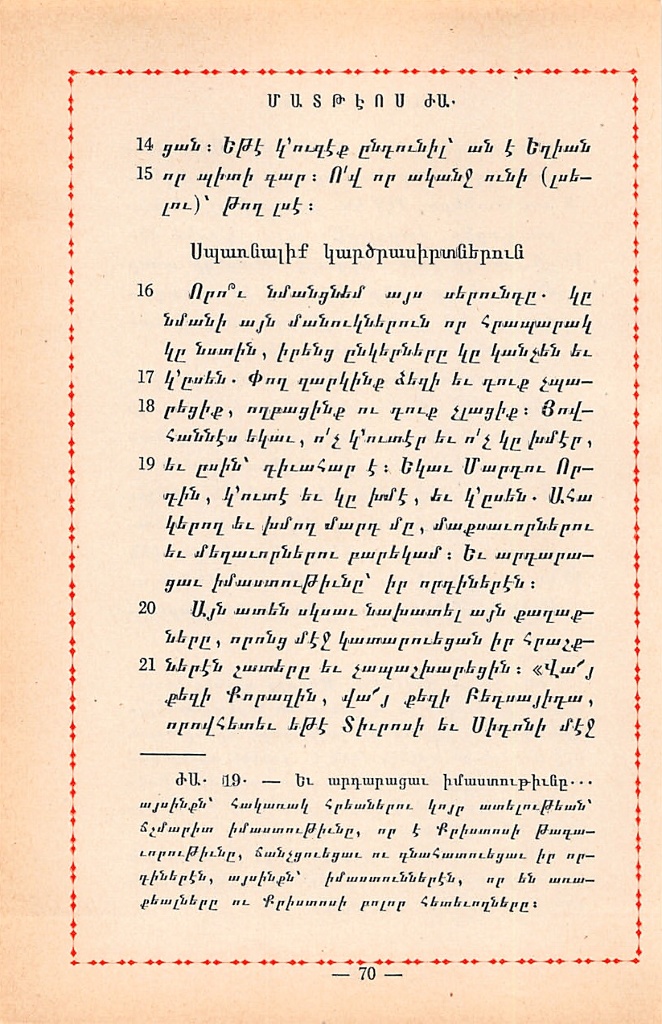 ՄԱՏԹԷՈՍ ԺԱ.
14 ցան։ Եթէ կ՚ուզէք ընդունիլ՝ ան է Եղիան
15 որ պիտի գար։ Ո՛վ որ ականջ ունի (լսե–
լու)՝ թող լսէ։
Սպառնալիք կարծրասիրտներուն
16 Որո՞ւ նմանցնեմ այս սերունդը. կը
նմանի այն մանուկներուն որ հրապարակ
կը նստին, իրենց ընկերները կը կանչեն եւ
17 կ՚ըսեն. Փող զարկինք ձեզի եւ դուք չպա–
18 րեցիք, ողբացինք ու դուք չլացիք։ Յով–
հաննէս եկաւ, ո՛չ կ՚ուտէր եւ ո՛չ կը խմէր,
19 եւ ըսին՝ դիւահար է։ Եկաւ Մարդու Որ–
դին, կ՚ուտէ եւ կը խմէ, եւ կ՚ըսեն. Ահա
կերող եւ խմող մարդ մը, մաքսաւորներու
եւ մեղաւորներու բարեկամ։ Եւ արդարա–
ցաւ իմաստութիւնը՝ իր որդիներէն։
20 Այն ատեն սկսաւ նախատել այն քաղաք–
ները, որոնց մէջ կատարուեցան իր հրաշք–
21 ներէն շատերը եւ չապաշխարեցին։ «Վա՜յ
քեզի Քորազին, վա՜յ քեզի Բեդսայիդա,
որովհետեւ եթէ Տիւրոսի եւ Սիդոնի մէջ
ԺԱ. 19. — Եւ արդարացաւ իմաստութիւնը...
այսինքն՝ հակառակ հրեաներու կոյր ատելութեան՝
ճշմարիտ իմաստութիւնը, որ է Քրիստոսի թագա–
ւորութիւնը, ճանչցուեցաւ ու գնահատուեցաւ իր որ–
դիներէն, այսինքն՝ իմաստուններէն, որ են առա–
քեալները ու Քրիստոսի բոլոր հետեւողները։
— 70 —